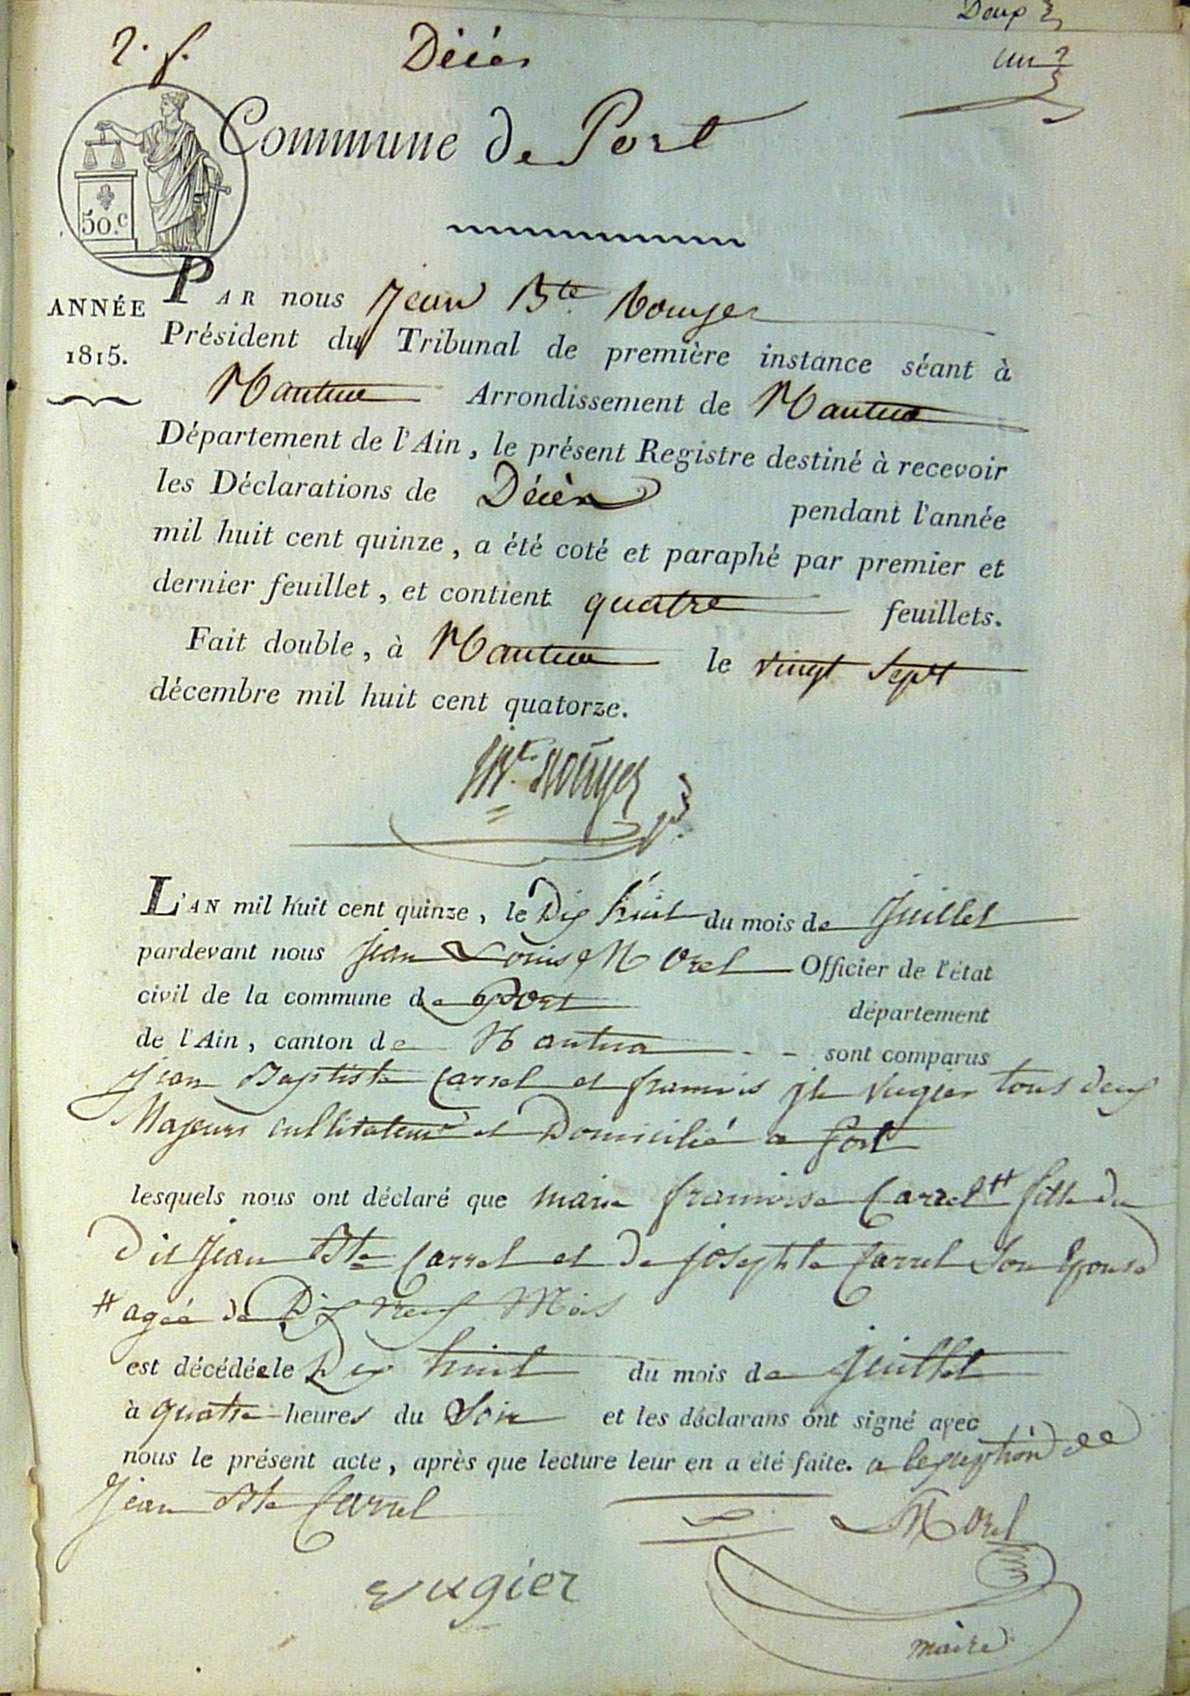 Deux
2. f. Décès
un
Commune de Port
50.c
ANNÉE
1815.
PAR nous Jean Bte Rouyer
Président du Tribunal de première instance séant à
Nantua Arrondissement de Nantua
Département de l'Ain, le présent Registre destiné à recevoir
les Déclarations de Décès pendant l'année
mil huit cent quinze, a été coté et paraphé par premier et
dernier feuillet, et contient quatre feuillets.
Fait double, à Nantua le vingt sept
décembre mil huit cent quatorze.
Rouyer
L'AN mil huit cent quinze, le Dix huit du mois de Juillet
pardevant nous Jean Louis Morel Officier de l'état
civil de la commune de Port département
de l'Ain, canton de Nantua - - sont comparus
Jean Baptiste Carrel et francois jh Vugier tous deux
Majeurs cultivateurs et Domicilié a Port
lesquels nous ont déclaré que marie francoise Carrel # fille du
Dit Jean Bte Carrel et de josephte Carrel Son Epouse
# agée de Dix Neuf Mois
est décédée le Dix huit du mois de juillet
à quatre heures du Soir et les déclarans ont signé avec
nous le présent acte, après que lecture leur en a été faite. a lexception de
Jean Bte Carrel
Morel
vugier
maire